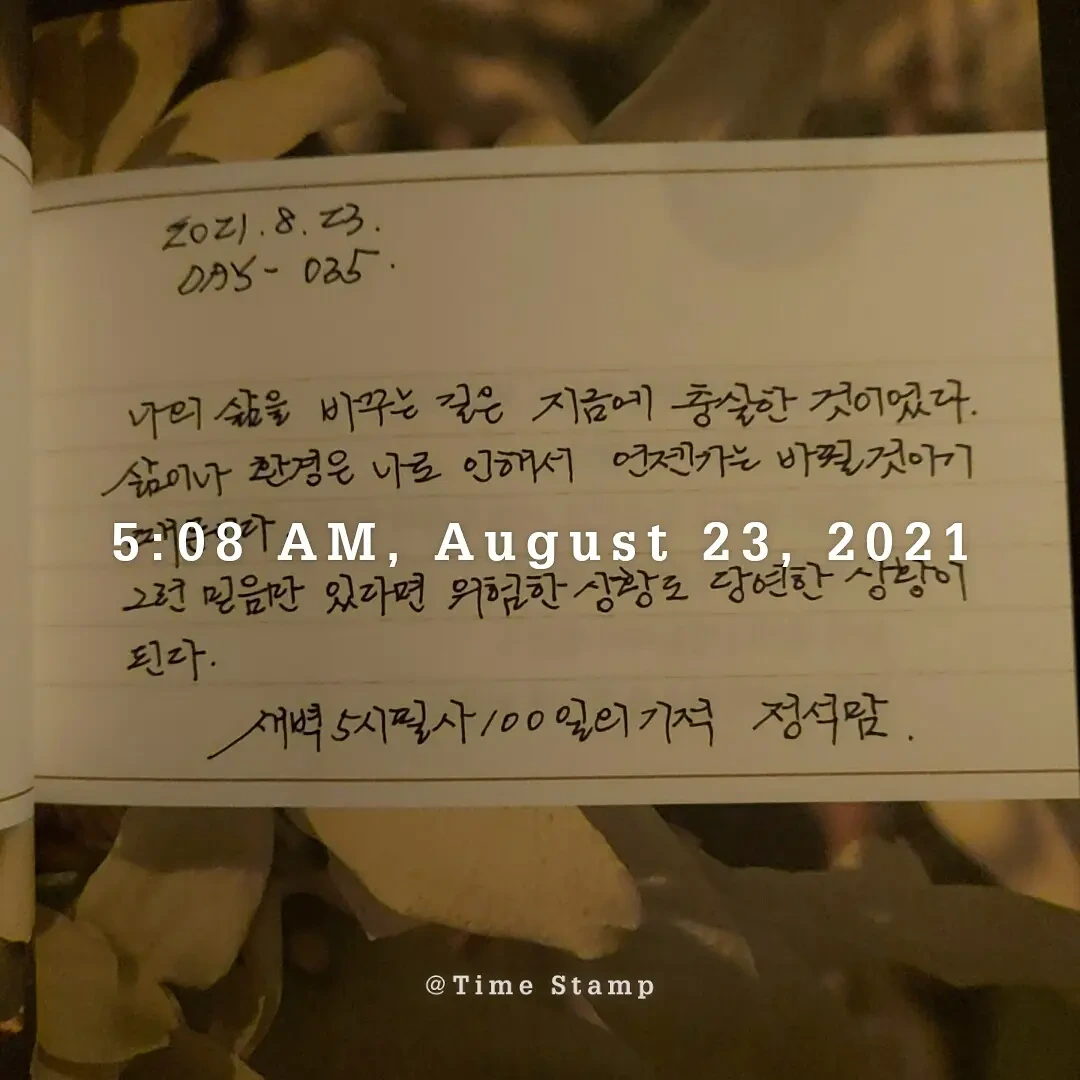 2021.8.23.
DAY- 035.
나의 삶을 바꾸는 길은 지금에 충실한 것이었다.
삶이나 환경은 나로 인해서 언젠가는 바뀔것이기
때문이다
5:08 AM, August 23, 2021
그런 믿음만 있다면 위험한 상황도 당연한 상황이
된다.
새벽5시필사100일의기적 정석맘.
@Time Stamp